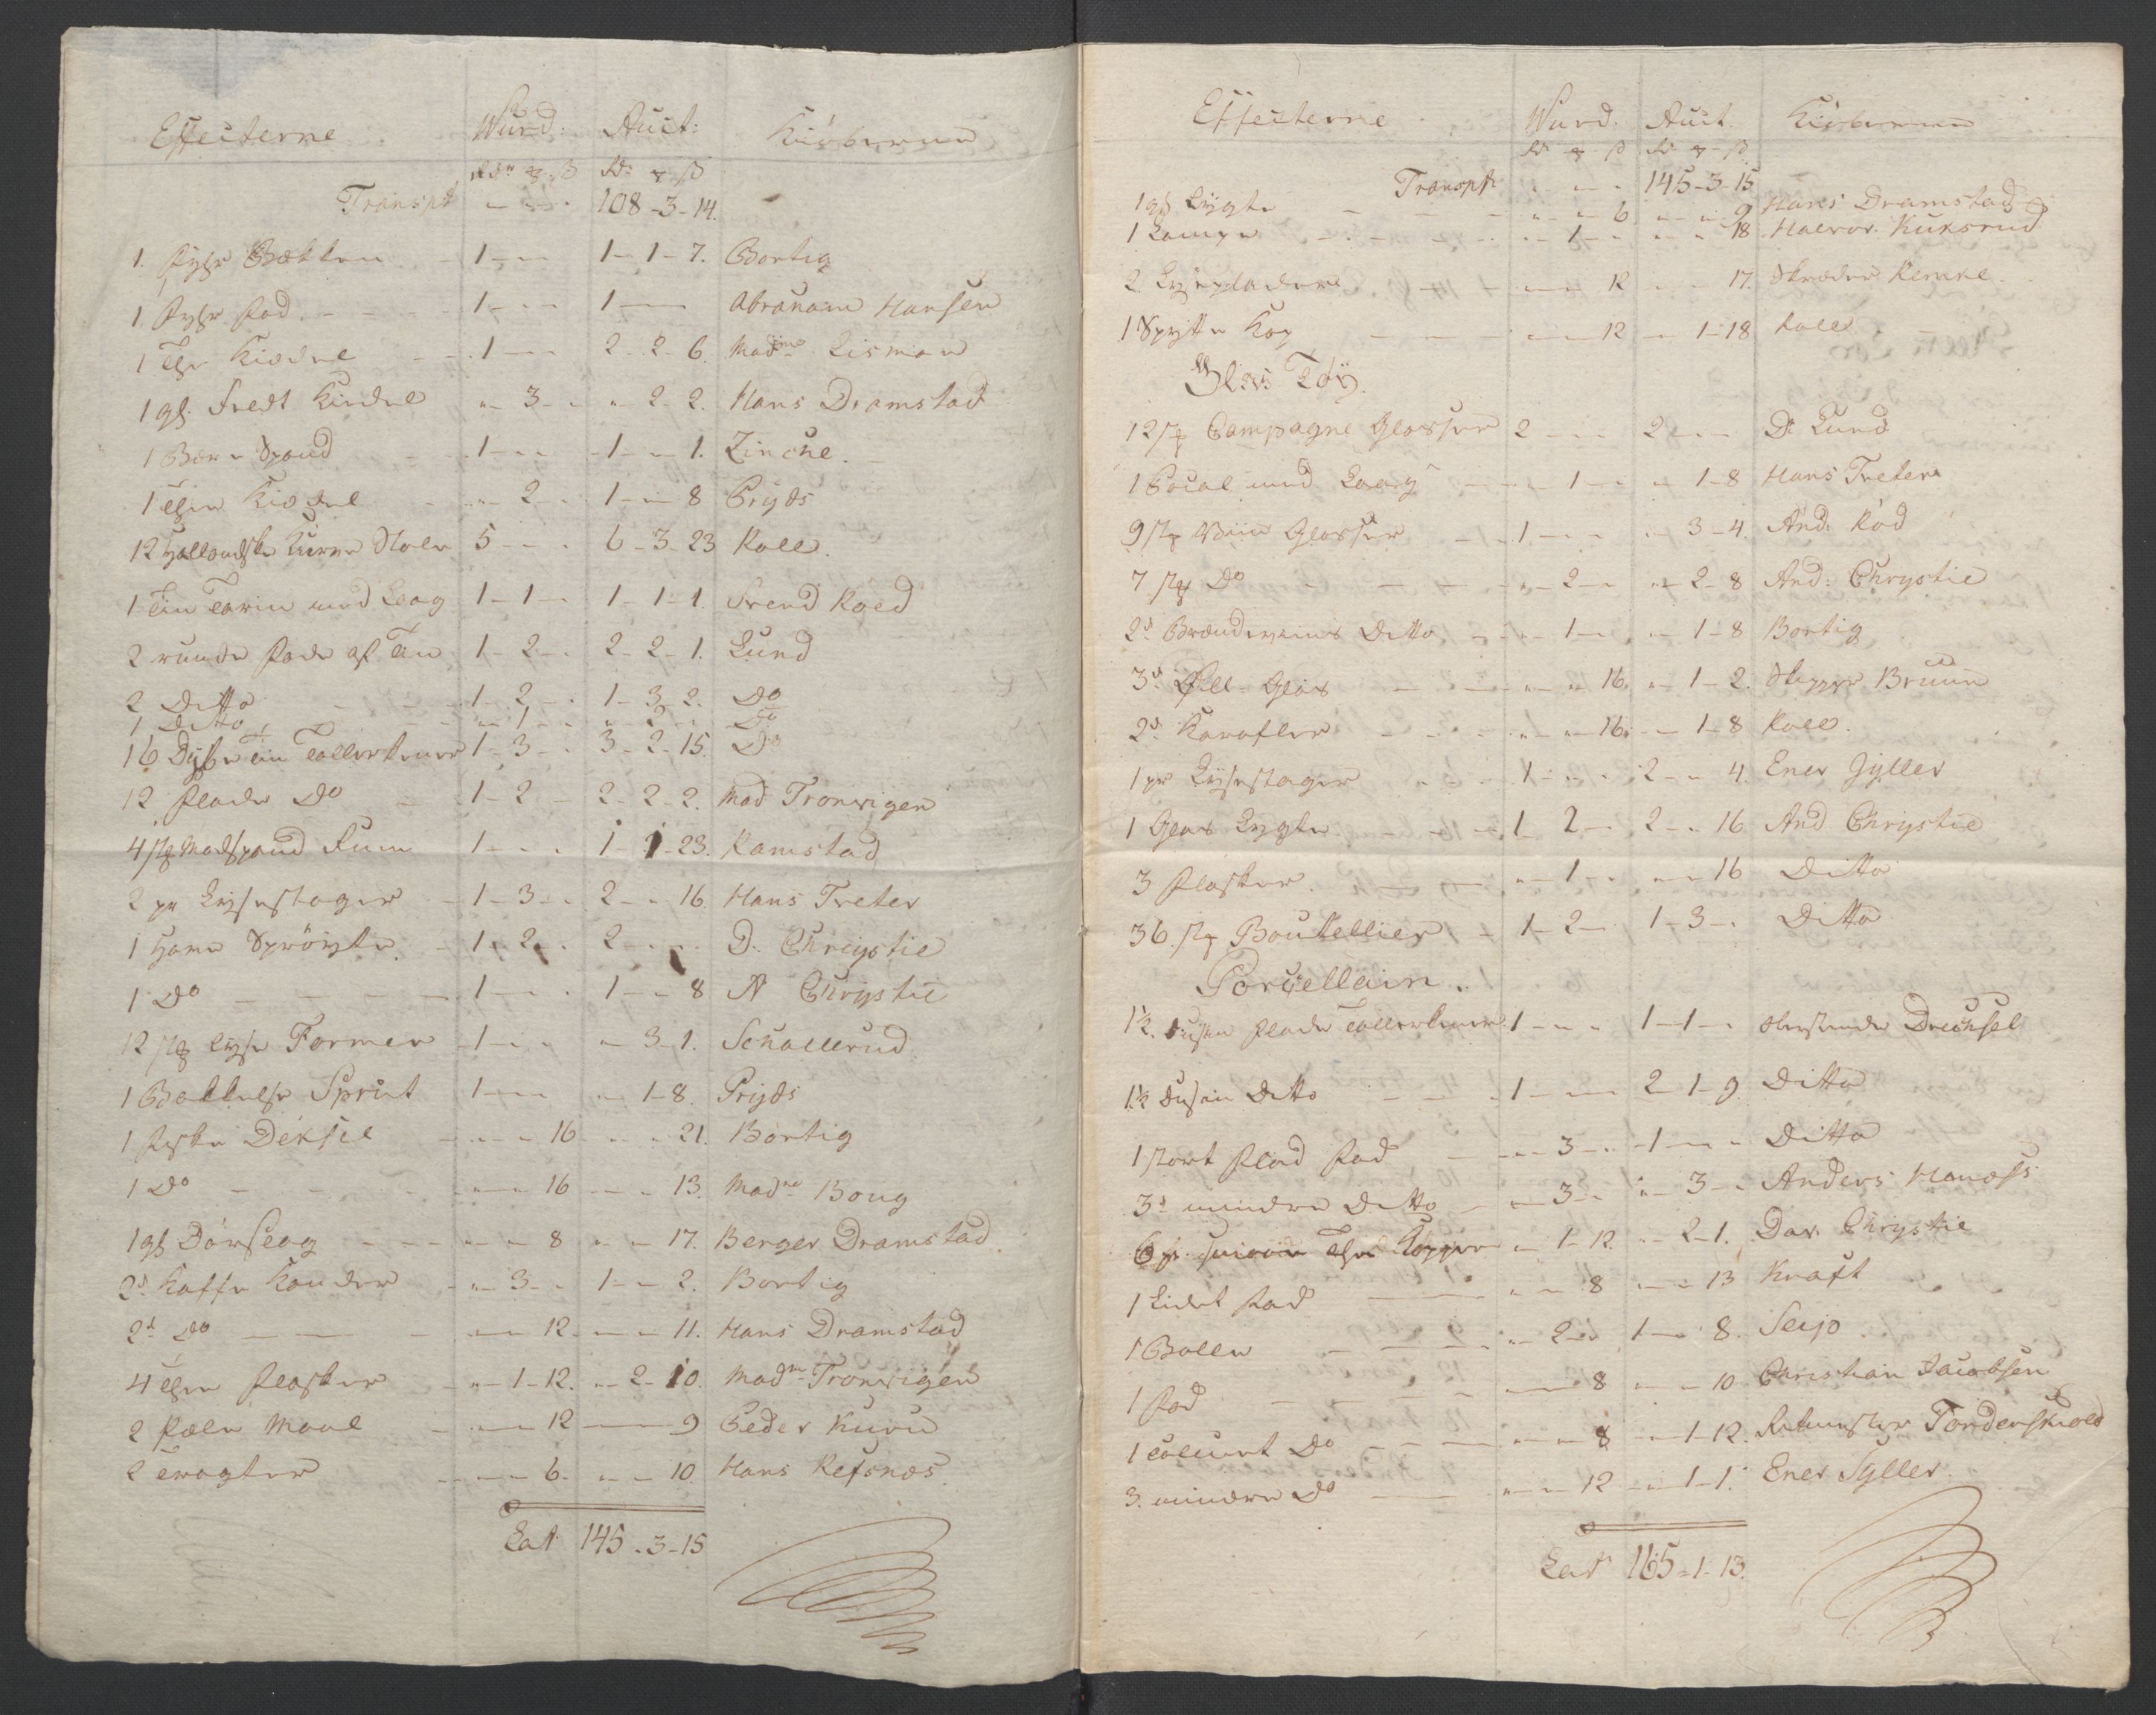 Effecterne Wurd: Auct: Kiöberne
Rdr ß Rdr ß
Transpt 108-3-14.
1. Bækken 1 1-1-7. Bortig
1 Fad 1 1 Abraham Hansen
1 The Kiedel 1 2-2-6. Mad Lisman
1 gl. Kiedel 3 2-2. Hans Dramstad
1 Bær Spand 1 1-1. Zinche.
1 Kiedel 2 1-8 Pryds
12 Hollandske Stole 5 6-3-23 Koll.
1 Tin Tarin med Laag 1-1 1-1-1. Svend Roed
2 runde Fade af Tin 1-2 2-2-1. Lund
2 Ditto 1-2 1-3-2. Do
1 Ditto 1 2 Do
16 Dybe Tin Tallerkener 1-3 3-2-15. Do
12 Flade Do 1-2 2-2-2. Mad Tronvigen
4 stk Madspand Rum 1 1-1-23. Ramstad
2 pr Lysestager 1-3 2-16. Hans Treter
1 Spröyte 1-2 2 D. Chrystie
1 Do 1 1-8 N Chrystie
12 stk Lyse Former 1 3-1. Schallerud
1 Bakkelse Sprut 1 1-8. Pryds
1 Deksel 16 21. Bortig
1 Do 16 13. Madme Boug
1 gl Dörslag 8 17. Berger Dramstad
2d Kaffe Kander 3 1-2. Bortig
2d Do 12. 11. Hans Dramstad
4 Flasker 1-12. 2-10. Madme Tronvigen
2 Pæle Maal 12 9 Peder Kurü
2 Tragter 6. 10 Hans Refsnæs
Lat 145-3-15
Effecterne Wurd. Auct. Kiöberne
Rdr ß Rdr ß
Transpt 145-3-15
1 gl Lygte 6 9 Hans Dramstad
1 Lampe 1 18 Halvor Kuksrud
2. Lyseplader 12 17. Skræder Remke.
1 Spytte Kop 12 1-18 Koll
Glas Töy.
12 stk Campagne Glasser 2 2 D: Lund
1 Pocal med Laag 1 1-8 Hans Treter
9 stk Viin Glasser 1 3-4. And: Röd
7 stk Do 2 2-8 And: Chrystie
2d Brændeviins Ditto 1 1-8 Bortig
3d Öll-Glas 16. 1-2. Skipper Bruun
2d Karafler 16. 1-8 Koll.
1 pr Lysestager 1 2-4. Ener Gyller
1 Glas Lygte 1 2 2-16 And Chrystie
3 Flasker. 1 16 Ditto
36. stk Boutellier 1-2 1-3 Ditto
Porcellain.
1½. Dusin Flade Tallerkener 1 1-1 Drechsel
1½ Dusin Ditto 1 2-1-9. Ditto
1 stort Flad Fad 3 1 Ditto
3d mindre Ditto 3 3 Anders Hanoss
6 pr The Kopper 1-12. 2-1. Dav. Chrystie
1 Lidet Fad 8 13 Kraft
1 Bolle 2 1-8. Seijo
1 Fad 8 10 Christian Jacobsen
1 Do 8 1-12. Ritmester Tordenskiold
3. mindre Do 12 1-1. Ener Gyller.
Lat 165-1-13.